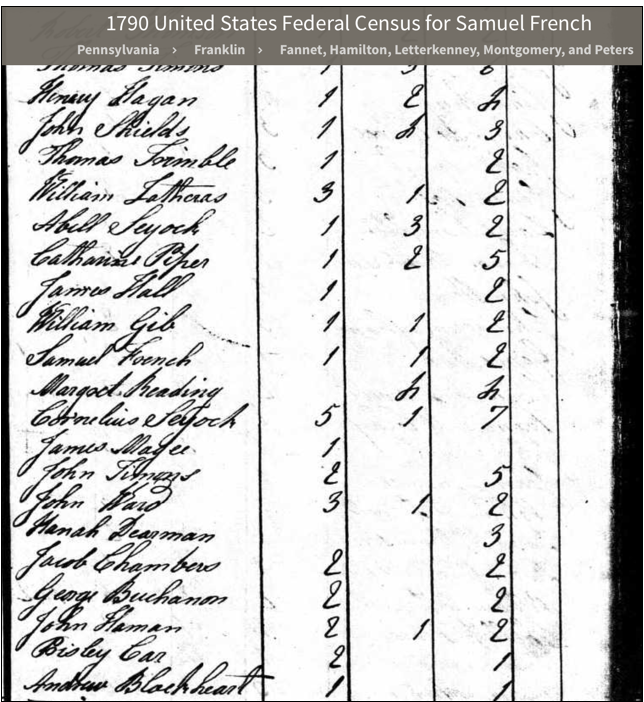 1790 United States Federal Census for Samuel French
Pennsylvania › Franklin › Fannet, Hamilton, Letterkenney, Montgomery, and Peters
Thomas Timins 1 3 6
Henry Hagan 1 2 4
John Shields 1 4 3
Thomas Trimble 1 2
William 3 1 2
Abill Seyock 1 3 2
Catharine Piper 1 2 5
James Hall 1 2
William Gib 1 1 2
Samuel French 1 1 2
Margret Reading 4 4
Cornelius Seyock 5 1 7
James Magee 1
John Timms 2 5
John Ward 3 1 2
Hanah Dearman 3
Jacob Chambers 2 2
George Buchanon 2 2
John Haman 2 1 2
Bisley Car 2 1
Andrew Blackheart 1 1